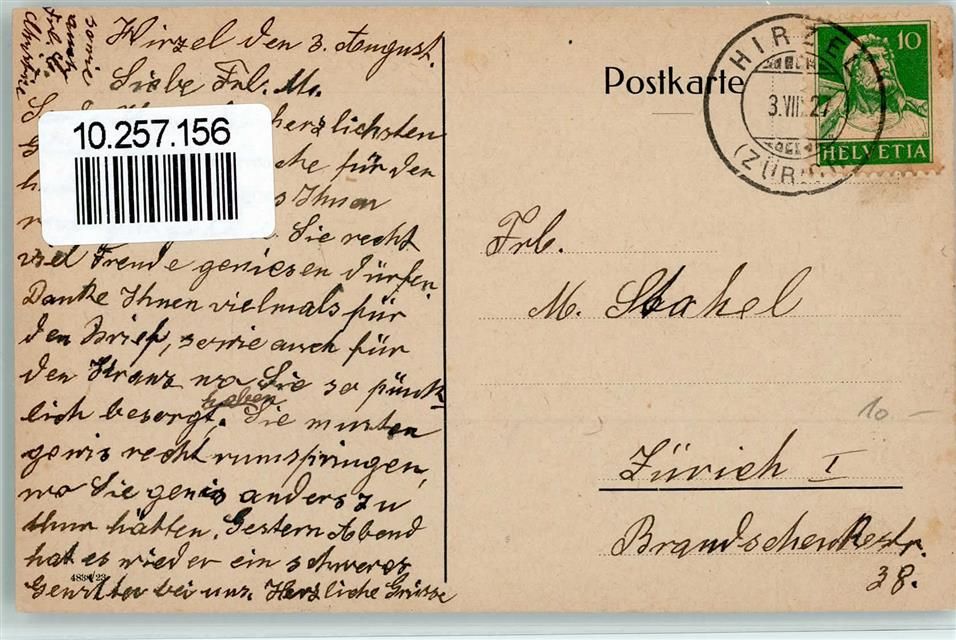 Hirzel den 3. August.
Liebe Frl. M.
herzlichsten
für den
Ihnen
Sie recht
viel Freude geniesen dürfen.
Danke Ihnen vielmals für
den Brief, sowie auch für
den Kranz wo Sie so pünkt-
haben
lich besorgt. Sie musten
gewis recht rumspringen,
wo Sie genis anders zu
thun hätten. Gestern Abend
hat es wieder ein schweres
Gewitter bei uns. Herzliche Grüsse
sowie
Frl.
Christine
10.257.156
483 23
Postkarte
HIRZEL
3.VIII.27
(ZÜRICH)
10
HELVETIA
Frl.
M. Stahel
10.–
Zürich I
Brandschenkestr.
38.